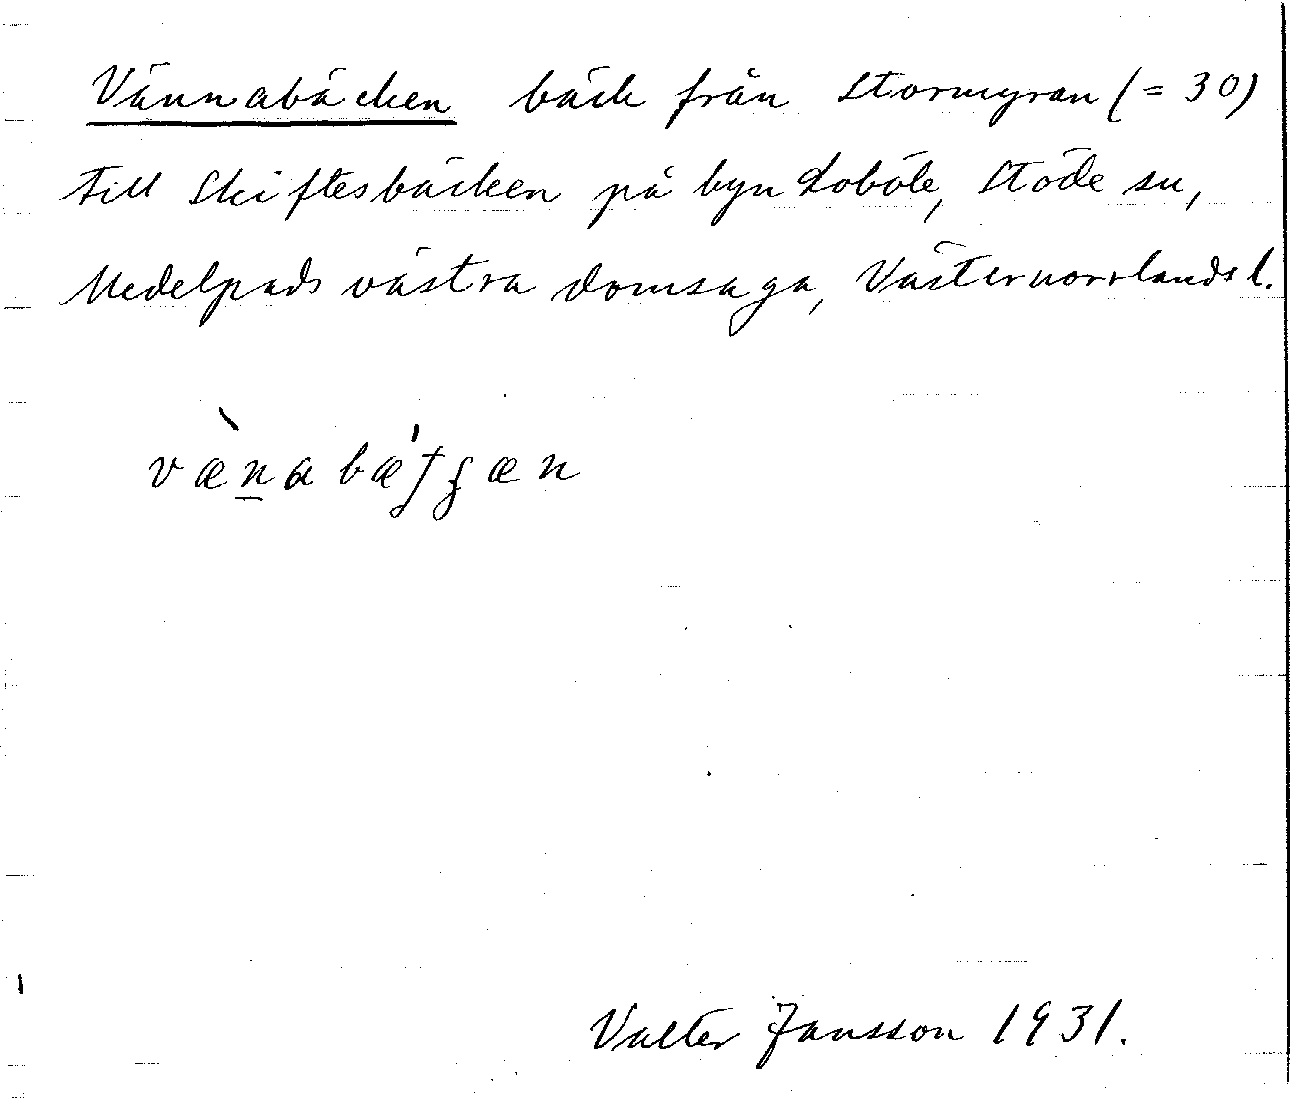 Vännabäcken bäck från Stormyran (= 30)
till Skiftesbäcken på byn Loböle, Stöde sn,
Medelpads västra domsaga, Västernorrlands l.
væ̀n̲abǽʃʒæn
Valter Jansson 1931.